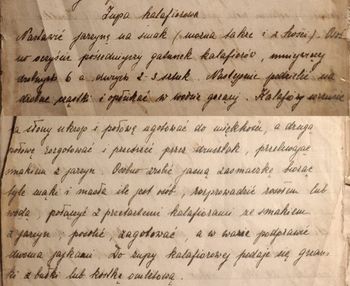 Zupa kalafiorowa
Nastawić jarzynę na smak (można także i z kości). Osob-
no oczyścić pośledniejszy gatunek kalafiorów, mniejszych
drobnych 6 a dużych 2-3 sztuk. Następnie podzielić na
drobne cząstki i opłukać w wodzie gorącej. Kalafiory wrzucić
na słony ukrop i połowę ugotować do miękkości, a drugą
połowę rozgotować i przetrzeć przez druszlak, przelewając
smakiem z jarzyn. Osobno zrobić jasną zasmażkę biorąc
tyle mąki i masła ile jest osób, rozprowadzić rosołem lub
wodą, połączyć z przetartemi kalafiorami ze smakiem
z jarzyn, posolić, zagotować, a w wazie podprawić
dwoma jajkami. Do zupy kalafiorowej podaje się grzan-
ki z bułki lub kostkę omletową.